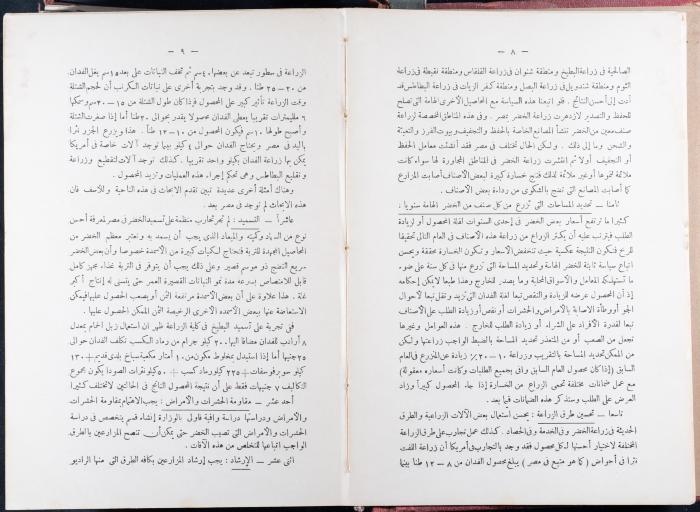 — ٨ —
الصالحية فى زراعة البطيخ ومنطقة شنوان فى زراعة القلقاس ومنطقة نقيطة فى زراعة
الثوم ومنطقة شندويل فى زراعة البصل ومنطقة كفر الزيات فى زراعة البطاطس قد
أدت إلى أحسن النتائج . فلو اتبعنا هذه السياسة مع المحاصيل الأخرى الهامة التى تصلح
للحفظ والتصدير لازدهرت زراعة الخضر بمصر . وفى هذه المناطق المخصصة لزراعة
صنف معين من الخضر تنشأ المصانع الخاصة بالحفظ والتجفيف وبيوت الفرز والتعبئة
والشحن وما إلى ذلك . ولكن الحال تختلف فى مصر فقد أنشئت معامل الحفظ
أو التجفيف أولا ثم انتشرت زراعة الخضر فى المناطق المجاورة لها سواء كانت
ملائمة لنموها أو غير ملائمة لذلك فنتج خسارة كبيرة لبعض الأصناف أصابت المزارع
كما أصابت المصانع التى تنضح بالشكوى من رداءة بعض الأصناف .
ثامنا — تحديد المساحات التى تزرع من كل صنف من الخضر الهامة سنويا .
كثيرا ما ترتفع أسعار بعض الخضر فى إحدى السنوات لقلة المحصول أو لزيادة
الطلب فيترتب عليه أن يكثر الزراع من زراعة هذه الأصناف فى العام التالى تحقيقا
للربح فتكون النتيجة عكسية حيث تنخفض الأسعار وتكون الخسارة محققة ويحسن
اتباع سياسة ثابتة للخضر الهامة وتحديد المساحة التى تزرع منها فى كل سنة على ضوء
ما تستهلكه المعامل والأسواق المحلية وما يصدر للخارج وهذا طبعا لا يمكن إحكامه
إذ أن المحصول عرضه للزيادة والنقص تبعا لغلة الفدان التى تزيد وتقل تبعا لأحوال
الجو أو وطأة الاصابة بالأمراض والحشرات أو نقص أو زيادة الطلب على الأصناف
تبعا لقدرة الأفراد على الشراء أو زيادة الطلب للخارج . هذه العوامل وغيرها
تجعل من الصعب أو من المتعذر تحديد المساحة بالضبط الواجب زراعتها ولكن
من الممكن تحديد المساحة بالتقريب وبزراعة ١٠ — ٢٠٪ زيادة عن المزرع فى العام
السابق ( إذا كان محصول العام السابق وافى بجميع الطلبات وكانت أسعاره معقولة )
مع عمل ضمانات مختلفة تحمى الزراع من الخسارة إذا جاء المحصول كبيرا وزاد
العرض على الطلب وستذكر هذه الضمانات فيما بعد .
تاسعا — تحسين طرق الزراعة : يحسن استعمال بعض الآلات الزراعية والطرق
الحديثة فى زراعة الخضر وفى الخدمة وفى الحصاد . كذلك عمل تجارب على طرق الزراعة
المختلفة لاختيار أحسنها لكل محصول فقد وجد بالتجارب فى أمريكا أن زراعة اللفت
نثرا فى أحواض ( كما هو متبع فى مصر ) يبلغ محصول الفدان من ٨ — ١٢ طنا بينما
— ٩ —
الزراعة فى سطور تبعد عن بعضها ٤٠ سم ثم تخف النباتات على بعد ١٥ سم يغل الفدان
من ٢٠ — ٢٥ طنا . وقد وجد بتجربة أخرى على نباتات الكرنب أن لحجم الشتلة
وقت الزراعة تأثير كبير على المحصول فاذا كان طول الشتلة من ١٥ — ٢٠ سم وسمكها
٦ ملليمترات تقريبا يعطى الفدان محصولا يقدر بحوالى ٢٠ طنا أما إذا صغرت الشتلة
وأصبح طولها ١٠ سم فيكون المحصول من ١٠ — ١٢ طنا . هذا ويزرع الجزر نثرا
باليد فى مصر ويحتاج الفدان حوالى ٤ كيلو بينما توجد آلات خاصة فى أمريكا
يمكن بها زراعة الفدان بكيلو واحد تقريبا . كذلك توجد آلات لتقطيع وزراعة
وتقليع البطاطس وهى تحكم إجراء هذه العمليات وتزيد المحصول .
وهناك أمثلة أخرى عديدة تبين تقدم الابحاث فى هذه الناحية وللأسف فان
هذه الابحاث لم توجد فى مصر بعد .
عاشرا — التسميد : لم تجر تجارب منظمة على تسميد الخضر فى مصر لمعرفة أحسن
نوع من السماد وكميته والميعاد الذى يجب أن يسمد به ونعتبر معظم الخضر من
المحاصيل المجهدة للتربة فتحتاج لكميات كبيرة من الأسمدة خصوصا وأن بعض الخضر
سريع النضج ذو موسم قصير وعلى ذلك يجب أن يتوفر فى التربة غذاء مجهز كامل
قابل للامتصاص بسرعة مدة نمو النباتات القصيرة العمر حتى يتسنى له إنتاج أكبر
غلة . هذا علاوة على أن بعض الأسمدة مرتفعة الثمن أو يصعب الحصول عليها فيمكن
الاستعاضة عنها ببعض الأسمدة الأخرى الرخيصة الثمن الممكن الحصول عليها .
ففى تجربة على تسميد البطيخ فى كلية الزراعة ظهر ان استعمال زبل الحمام بمعدل
٨ أرادب للفدان مضافا اليها ٢٠٠ كيلو جرام من رماد الكسب تكلف الفدان حوالى
٢٥ جنيها أما إذا استبدل بمخلوط مكون من ١٠ أمتار مكعبة سباخ بلدى قديم + ١٣٠
كيلو سوبر فوسفات + ٢٢٥ كيلو رماد كسب + ٥٠ كيلو نترات الصودا يكون مجموع
التكاليف ٧ جنيهات فقط على أن نتيجة المحصول الناتج فى الحالتين لا تختلف كثيرا
أحد عشر — مقاومة الحشرات والأمراض : يجب الاهتمام بمقاومة الحشرات
والأمراض ودراستها دراسة وافية فلو بالوزارة إنشاء قسم يتخصص فى دراسة
الحشرات والأمراض التى تصيب الخضر حتى يمكن أن تنصح المزارعين بالطرق
الواجب اتباعها للتخلص من هذه الآفات .
اثنى عشر — الإرشاد : يجب إرشاد المزارعين بكافة الطرق التى منها الراديو